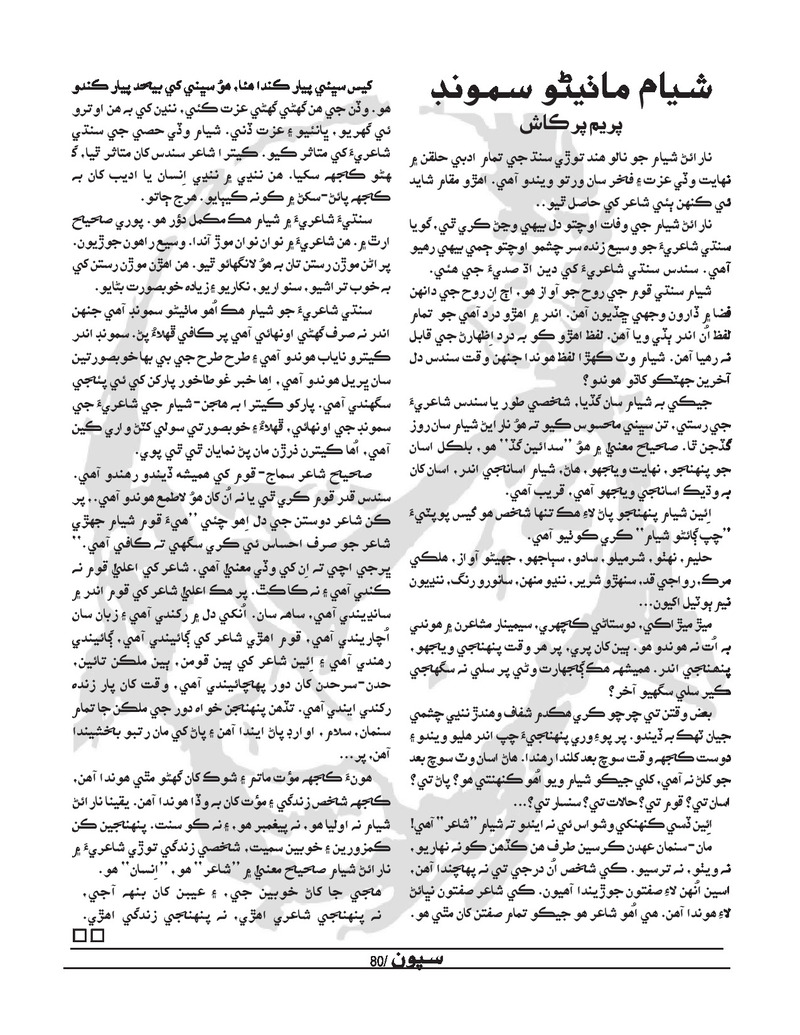 شيام ماٺيڻو سمونڊ
پريم پرڪاش
نارائڻ شيام جو نالو هند توڙي سنڌ جي تمام ادبي حلقن ۾
نهايت وڏي عزت ۽ فخر سان ورتو ويندو آهي. اهڙو مقام شايد
ئي ڪنهن ٻئي شاعر کي حاصل ٿيو..
نارائڻ شيام جي وفات اوچتو دل بيهي وڃڻ ڪري ٿي، گويا
سنڌي شاعريءَ جو وسيع زندہ سرچشمو اوچتو ڄمي بيهي رهيو
آهي. سندس سنڌي شاعريءَ کي ڏين اڌ صديءَ جي هئي.
شيام سنڌي قوم جي روح جو آواز هو، اڄ ان روح جي دانهن
فضا ۾ ڏارون وجهي ڇڏيون آهن. اندر ۾ اهڙو درد آهي جو تمام
لفظ اُن اندر ٻڏي ويا آهن. لفظ اهڙو ڪو به درد اِظهارڻ جي قابل
نه رهيا آهن. شيام وٽ ڪهڙا لفظ هوندا جنهن وقت سندس دل
آخرين جهٽڪو کاڌو هوندو؟
جيڪي به شيام سان گڏيا، شخصي طور يا سندس شاعريءَ
جي رستي، تن سڀني محسوس ڪيو ته هُو نارايڻ شيام سان روز
گڏجن ٿا. صحيح معنيٰ ۾ هُو ''سدائين گڏ'' هو، بلڪل اسان
جو پنهنجو، نهايت ويجهو، هاڻ، شيام اسانجي اندر، اسان کان
به وڌيڪ اسانجي ويجهو آهي، قريب آهي.
اِئين شيام پنهنجو پاڻ لاءِ هڪ تنها شخص هو ڪيس پوپٽيءَ
''چپ ڳائڻو شيام'' ڪري ڪوٺيو آهي.
حليم، نهٺو، شرميلو، سادو، سٻاجهو، جهيڻو آواز، هلڪي
مرڪ، رواجي قد، سنهڙو شرير، ننڍو منهن، سانورو رنگ، ننڍيون
نيم ٻوٽيل اکيون...
ميڙ ميڙاڪي، دوستاڻي ڪچهري، سيمينار مشاعرن ۾ هوندي
به اُت نه هوندو هو. ٻين کان پري، پر هر وقت پنهنجي ويجهو،
پنهنجي اندر. هميشہ هڪ ڳجهارت وڻي پر سلي نه سگهجي
ڪير سلي سگهيو آخر؟
بعض وقتن تي چرچو ڪري هڪدم شفاف وهندڙ ننڍي چشمي
جيان ٽهڪ به ڏيندو. پر پوءِ وري پنهنجيءَ چپ اندر هليو ويندو ۽
دوست ڪجهہ وقت سوچ بعد کلندا رهندا. هاڻ اسان وٽ سوچ بعد
جو کلڻ نه آهي، کلي جيڪو شيام ويو اُهو ڪنهنتي هو؟ پاڻ تي؟
اسان تي؟ قوم تي؟ حالات تي؟ سنسار تي؟...
اِئين ڏسي ڪنهنکي وشواس ئي نه ايندو ته شيام ''شاعر'' آهي!
مان-سنمان عهدن ڪرسين طرف هن ڪڏهن ڪونه نهاريو،
نه ويٺو، نه ترسيو. ڪي شخص اُن درجي تي نه پهچندا آهن،
اسين اُنهن لاءِ صفتون جوڙيندا آهيون. ڪي شاعر صفتون نڀائڻ
لاءِ هوندا آهن. هي اُهو شاعر هو جيڪو تمام صفتن کان مٿي هو.
کيس سڀئي پيار ڪندا هئا، هوُ سڀني کي بيحد پيار ڪندو
هو. وڏن جي هن گهڻي گهڻي عزت ڪئي، ننڍن کي به هن اوترو
ئي گهريو، ڀانئيو ۽ عزت ڏني. شيام وڏي حصي جي سنڌي
شاعريءَ کي متاثر ڪيو. ڪيترا شاعر سندس کان متاثر ٿيا، گ
هڻو ڪجهہ سکيا. هن ننڍي ۾ ننڍي اِنسان يا اديب کان به
ڪجهہ پائڻ-سکڻ ۾ ڪونه ڪيٻايو. هرج ڄاتو.
سنڌيءَ شاعريءَ ۾ شيام هڪ مڪمل دؤر هو. پوري صحيح
ارٿ ۾. هن شاعريءَ ۾ نوان نوان موڙ آندا. وسيع راهون جوڙيون.
پراڻن موڙن رستن تان به هوُ لانگهائو ٿيو. هن اهڙن موڙن رستن کي
به خوب تراشيو، سنواريو، نکاريو ۽ زيادہ خوبصورت بڻايو.
سنڌي شاعريءَ جو شيام هڪ اُهو ماٺيڻو سمونڊ آهي جنهن
اندر نه صرف گهڻي اونهائي آهي پر ڪافي ڦهلاءُ پڻ. سمونڊ اندر
ڪيترو ناياب هوندو آهي ۽ طرح طرح جي بي بها خوبصورتين
سان ڀريل هوندو آهي، اِها خبر غوطاخور پارکن کي ئي پئجي
سگهندي آهي. پارکو ڪيترا به هجن-شيام جي شاعريءَ جي
سمونڊ جي اونهائي، ڦهلاءُ ۽ خوبصورتي سولي ڪٿڻ واري ڪين
آهي، اُها ڪيترن ذرڙن مان پڻ نمايان ٿي ٿي پوي.
صحيح شاعر سماج-قوم کي هميشہ ڏيندو رهندو آهي.
سندس قدر قوم ڪري ٿي يا نه اُن کان هوُ لاطمع هوندو آهي.، پر
ڪن شاعر دوستن جي دل اِهو چئي ''هيءَ قوم شيام جهڙي
شاعر جو صرف احساس ئي ڪري سگهي ته ڪافي آهي.''
ڀرجي اچي ته اِن کي وڏي معنيٰ آهي. شاعر کي اعليٰ قوم نه
ڪندي آهي ۽ نه ڪا ڪٿ. پر هڪ اعليٰ شاعر کي قوم اندر ۾
سانڍيندي آهي، ساهہ سان. اُنکي دل ۾ رکندي آهي ۽ زبان سان
اُچاريندي آهي، قوم اهڙي شاعر کي ڳائيندي آهي، ڳائيندي
رهندي آهي ۽ اِئين شاعر کي ٻين قومن، ٻين ملڪن تائين،
حدن-سرحدن کان دور پهچائيندي آهي، وقت کان پار زندہ
رکندي ايندي آهي. تڏهن پنهنجن خواہ دور جي ملڪن جا تمام
سنمان، سلام، اوارڊ پاڻ ايندا آهن ۽ پاڻ کي مان رتبو بخشيندا
آهن، پر...
هونءَ ڪجهہ مؤت ماتم ۽ شوڪ کان گهڻو مٿي هوندا آهن،
ڪجهہ شخص زندگي ۽ مؤت کان به وڏا هوندا آهن. يقينا نارائڻ
شيام نه اوليا هو، نه پيغمبر هو، ۽ نه ڪو سنت. پنهنجين ڪن
ڪمزورين ۽ خوبين سميت، شخصي زندگي توڙي شاعريءَ ۾
نارائڻ شيام صحيح معنيٰ ۾ ''شاعر'' هو، ''اِنسان'' هو.
هڪجي جا کاڻ خوبين جي، ۽ عيبن کان ٻنهہ آجي،
نه پنهنجي شاعري اهڙي، نه پنهنجي زندگي اهڙي.
سپون /80